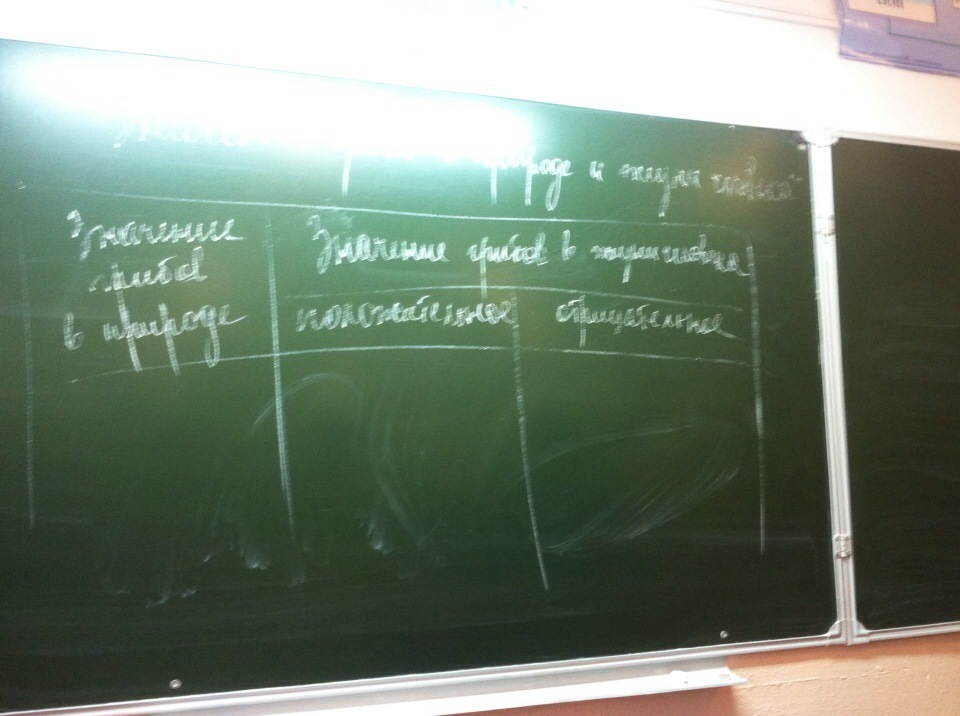 природе и жизни человека
Значение
грибов
в природе
Значение грибов в жизни человека
положительное отрицательное